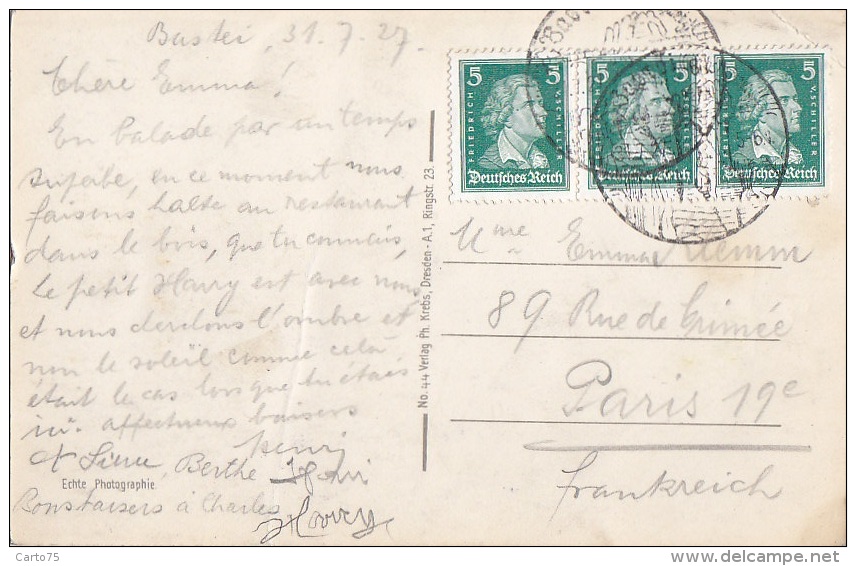 Bastei, 31.7.27.
Chère Emma!
En balade par un temps
superbe, en ce moment nous
faisons halte au restaurant
dans le bois, que tu connais,
Le petit Harry est avec nous,
et nous cherchons l'ombre et
non le soleil comme cela
était le cas lorsque tu étais
ici. affectueux baisers
Henri
Berthe
Bons baisers à Charles
Harry
Echte Photographie
No. 44 Verlag Ph. Krebs, Dresden - A.1, Ringstr. 23.
5 5
FRIEDRICH V. SCHILLER
Deutsches Reich
5 5
FRIEDRICH V. SCHILLER
Deutsches Reich
5 5
FRIEDRICH V. SCHILLER
Deutsches Reich
Mme Emma
89 Rue de Crimée
Paris 19e
Frankreich
Carto75
www.delcampe.net